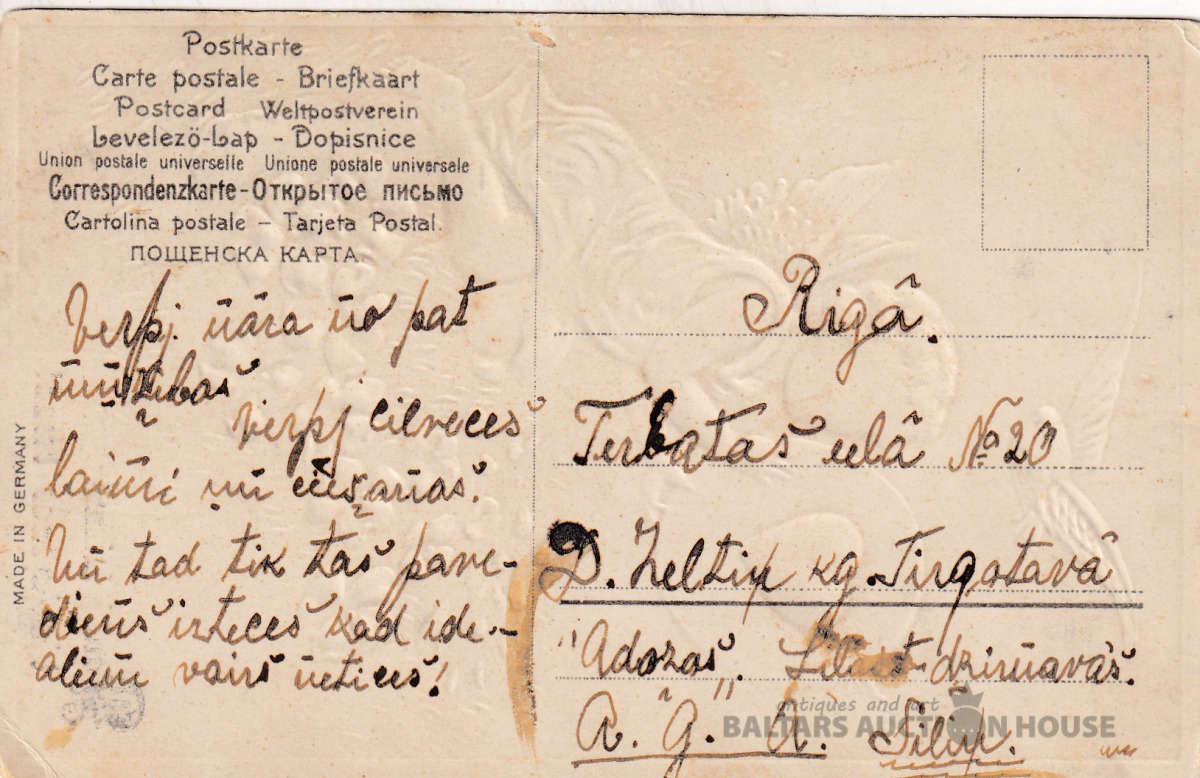 Postkarte
Carte postale - Briefkaart
Postcard Weltpostverein
Levelező-Lap - Dopisnice
Union postale universelle Unione postale universale
Correspondenzkarte-Открытое письмо
Cartolina postale - Tarjeta Postal.
ПОЩЕНСКА КАРТА.
MADE IN GERMANY
Verpj nāra no pat
verpj cilveces
laimi un
Un tad tik tas pave-
diens izteces kad ide-
aliem vairs netices!
Rigâ.
Terbatas ielâ № 20
D. Zeltiņ kg. Tirgotavâ
"Adozas". dzirnavâs.
A. G. A. Siliņ.
antiques and art
BALTARS AUCTION HOUSE